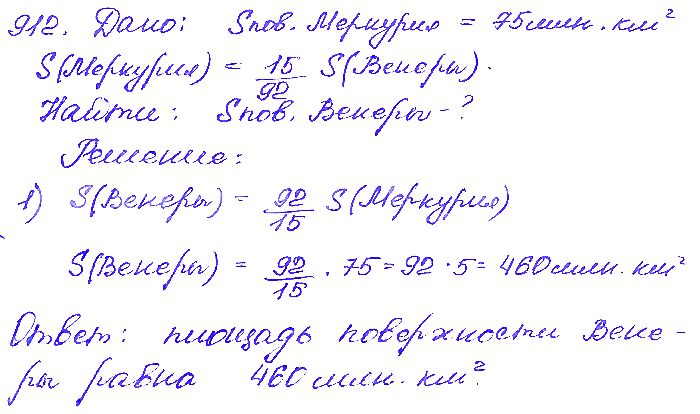 912. Дано: Sпов. Меркурия = 75 млн. км²
S(Меркурия) = 15/92 S(Венеры).
Найти: Sпов. Венеры - ?
Решение:
1) S(Венеры) = 92/15 S(Меркурия)
S(Венеры) = 92/15 · 75 = 92 · 5 = 460 млн. км²
Ответ: площадь поверхности Вене-
ры равна 460 млн. км².